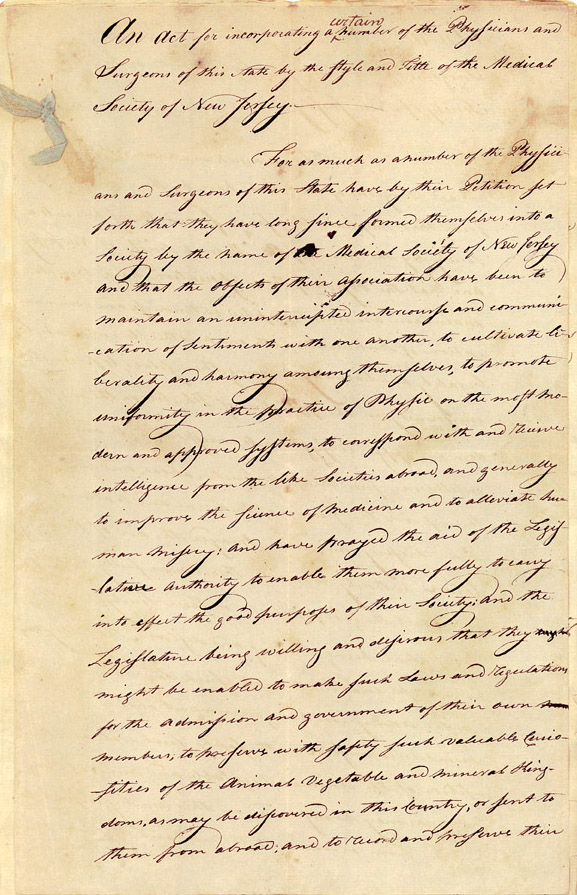 An Act for incorporating a certain number of the Physicians and
Surgeons of this State by the Style and Title of the Medical
Society of New Jersey.
For as much as a number of the Physici-
ans and Surgeons of this State have by their Petition set
forth that they have long since formed themselves into a
Society by the name of the Medical Society of New Jersey
and that the Objects of their Association have been to
maintain an uninterrupted intercourse and communi
-cation of Sentiments with one another, to cultivate li-
berality and harmony amoung themselves, to promote
uniformity in the practice of Physic on the most mo-
dern and approved systems, to correspond with and receive
intelligence from the like Societies abroad, and generally
to improve the Science of Medicine and to alleviate hu
man misery; and have prayed the aid of the Legis
lative Authority to enable them more fully to carry
into effect the good purposes of their Society; and the
Legislature being willing and desirous that they
might be enabled to make such Laws and regulations
for the admission and government of their own
members, to preserve with safety such valuable Curio-
sities of the Animal Vegetable and mineral King-
doms, as may be discovered in this Country, or sent to
them from abroad; and to record and preserve their